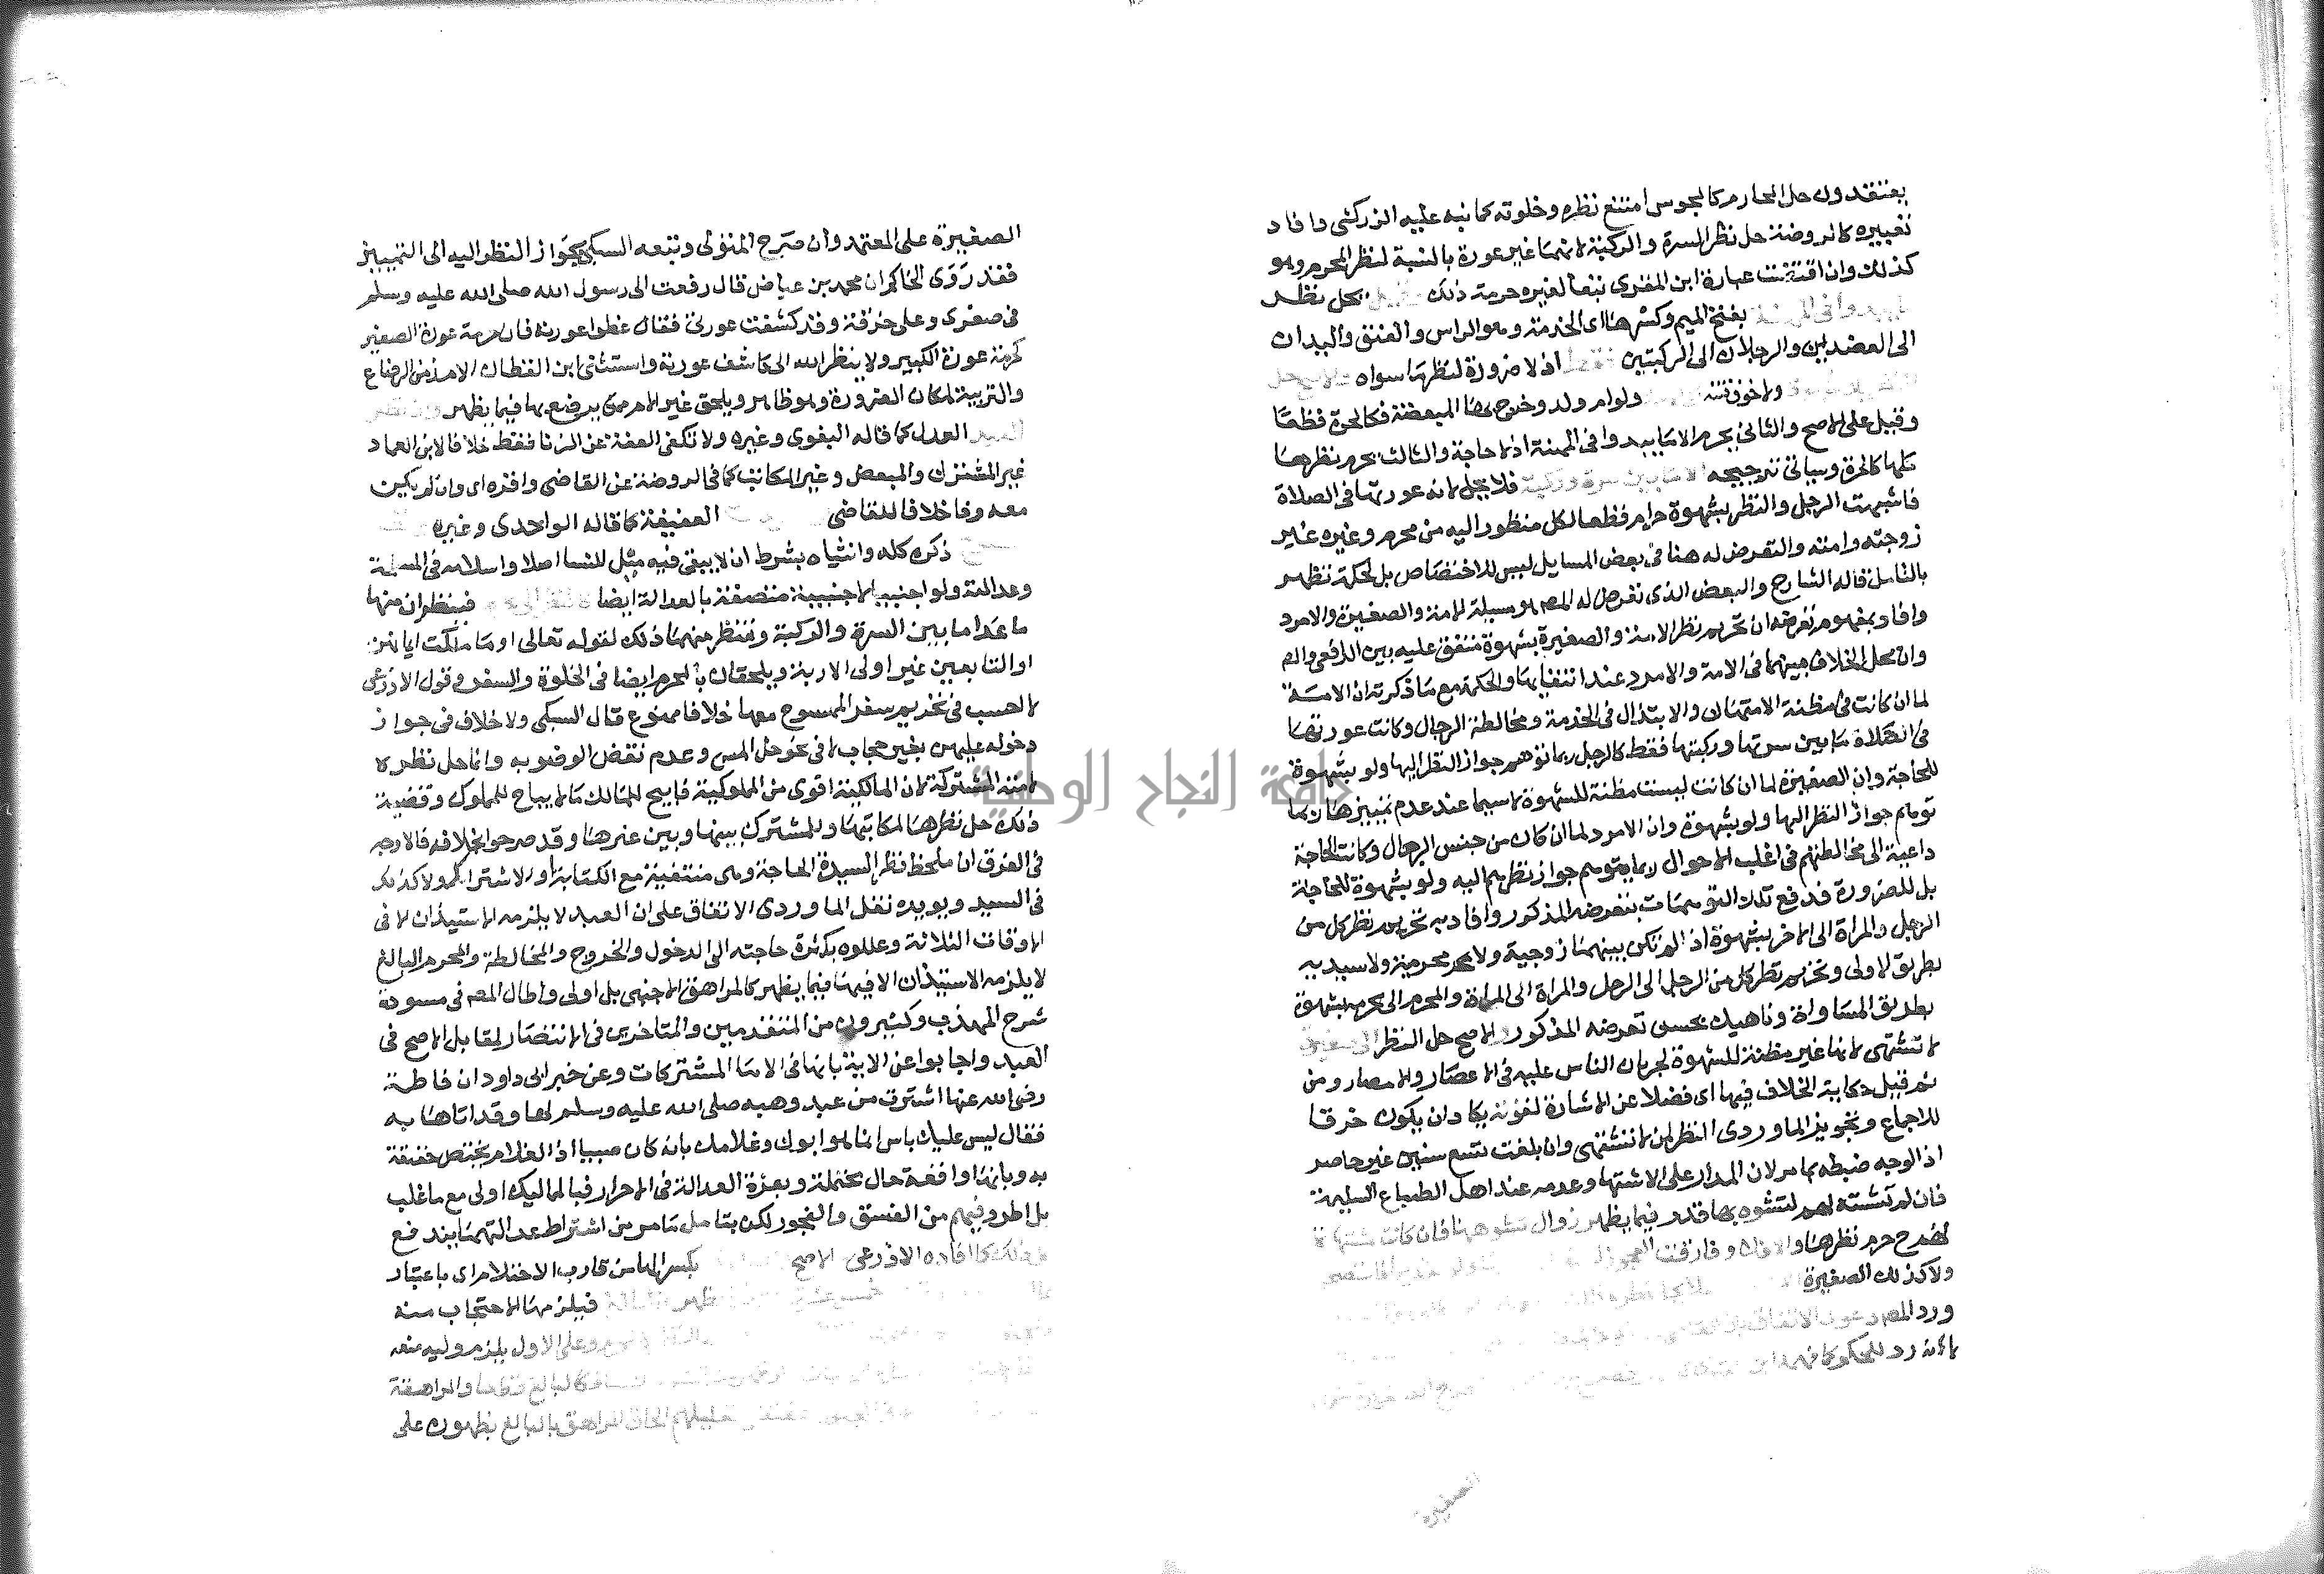 يعتقدون حل المحارم كالمجوس امتنع نظره وخلوته كما نبه عليه الزركشي وافاد
تعبيره كالروضة حل نظر السرة والركبة لانهما غير عورة بالنسبة لنظر المحرم وهو
كذلك وان اقتضت عبارة ابن المقري تبعا لغيره حرمة ذلك بحل نظر
بفتح الميم وكسرها اى الخدمة وهو الراس والعنق واليدان
الى العضدين والرجلان الى الركبتين اذ لا ضرورة لنظر ما سواه
ولا خوف فتنة ولو ام ولد وخرج بها المبعضة فكالحرة قطعا
وقيل على الاصح والثاني يحرم الا ما يبدو في المهنة اذ لا حاجة والثالث يحرم نظرها
كلها كالحرة وسياتى ترجيحه الا ما بين سرة وركبة فلا يحل لانه عورتها في الصلاة
فاشبهت الرجل والنظر بشهوة حرام قطعا لكل منظور اليه من محرم وغيره غير
زوجته وامته والتعرض له هنا في بعض المسايل ليس للاختصاص بل لحكمة تظهر
بالتامل قاله الشارح والبعض الذى تعرض له المص هو مسيلة الامة والصغيرة والامرد
وافاد بمفهوم تعرضه ان تحريم نظر الامة والصغيرة بشهوة متفق عليه بين الرافعى والمص
وان محل الخلاف بينهما في الامة والامرد عند انتفايها والحكمة مع ما ذكرته ان الامة
لما ان كانت في مظنة الامتهان والابتذال في الخدمة ومخالطة الرجال وكانت عورتها
في الصلاة ما بين سرتها وركبتها فقط كالرجل ربما توهم جواز النظر اليها ولو بشهوة
للحاجة وان الصغيرة لما ان كانت ليست مظنة للشهوة لاسيما عند عدم تمييزها ربما
توهم جواز النظر اليها ولو بشهوة وان الامرد لما ان كان من جنس الرجال وكانت الحاجة
داعية الى مخالطتهم في اغلب الاحوال ربما يتوهم جواز نظرهم اليه ولو بشهوة للحاجة
بل للضرورة فدفع تلك التوهمات بتعرضه المذكور وافاد به تحريم نظر كل من
الرجل والمراة الى الاخر بشهوة اذ لم تكن بينهما زوجية ولا محرمية ولا سيدية
بطريق الاولى وتحريم نظر كل من الرجل الى الرجل والمراة الى المراة والمحرم الى محرمه بشهوة
بطريق المساواة وناهيك بحسن تعرضه المذكور والاصح حل النظر الى صغيرة
لا تشتهى لانها غير مظنة للشهوة لجريان الناس عليه في الاعصار والامصار ومن
ثم قيل حكاية الخلاف فيها اى فضلا عن الاشارة لقوته يكاد ان يكون خرقا
للاجماع وتجويز الماوردى النظر لمن لا تشتهى وان بلغت تسع سنين غير حاصر
اذ الوجه ضبطه بما مر لان المدار على الاشتها وعدمه عند اهل الطباع السليمة
فان لم تشته لهم لتشوه بها قدر فيما يظهر زوال تشوهها فان كانت مشتهاة
لهم ح حرم نظرها والا فلا وفارقت العجوز
ولا كذلك الصغيرة
ورد المص دعوى الاتفاق
لانه رد للحكم كما فهمه ابن
الصغيرة
الصغيرة على المعتمد وان صرح المتولى وتبعه السبكى بجواز النظر اليه الى التمييز
فقد روى الحاكم ان محمد بن عياض قال رفعت الى رسول الله صلى الله عليه وسلم
في صغرى وعلى خرقة وقد كشفت عورتى فقال غطوا عورته فان حرمة عورة الصغير
كحرمة عورة الكبير ولا ينظر الله الى كاشف عورته واستثنى ابن القطان الام زمن الرضاع
والتربية لمكان الضرورة وهو ظاهر ويلحق غير الام ممن يرضع بها فيما يظهر
العدل كما قاله البغوى وغيره ولا تكفى العفة عن الزنا فقط خلافا لابن العماد
غير المشترك والمبعض وغير المكاتب كما في الروضة عن القاضى واقره اى وان لم يكن
معه وفا خلافا للقاضى العفيفة كما قاله الواحدى وغيره
ذكره كله وانثياه بشرط ان لا يبقى فيه ميل للنسا اصلا واسلامه في المسلمة
وعدالته ولو اجنبيا لاجنبية متصفة بالعدالة ايضا فينظران منها
ما عدا ما بين السرة والركبة وتنظر منهما ذلك لقوله تعالى او ما ملكت ايمانهن
او التابعين غير اولى الاربة ويلحقان بالمحرم ايضا في الخلوة والسفر وقول الاذرعى
لا احسب في تحريم سفر الممسوح معها خلافا ممنوع قال السبكى ولا خلاف في جواز
دخوله عليهن بغير حجاب لا في نحو حل المس وعدم نقض الوضو به وانما حل نظره لا
لامته المشتركة لان المالكية اقوى من المملوكية فابيح للمالك ما لا يباح للمملوك وقضية
ذلك حل نظرها لمكاتبها وللمشترك بينها وبين غيرها وقد صرحوا بخلافه فالاوجه
في الفرق ان ملحظ نظر السيدة الحاجة وهى منتفية مع الكتابة او الاشتراك ولا كذلك
في السيد ويويده نقل الماوردى الاتفاق على ان العبد لا يلزمه الاستيذان الا في
الاوقات الثلاثة وعللوه بكثرة حاجته الى الدخول والخروج والمخالطة والمحرم البالغ
لا يلزمه الاستيذان الا فيها فيما يظهر كالمراهق الاجنبى بل اولى واطال المص في مسودة
شرح المهذب وكثيرون من المتقدمين والمتاخرين في الانتصار لمقابل الاصح في
العبد واجابوا عن الاية بانها في الاما المشتركات وعن خبر ابى داود ان فاطمة
رضى الله عنها اشترت من عبد وهبه صلى الله عليه وسلم لها وقد اتاها به
فقال ليس عليك باس انما هو ابوك وغلامك بانه كان صبيا اذ الغلام يختص حقيقة
به وبانها واقعة حال محتملة وبعزة العدالة في الاحرار فبالمماليك اولى مع ما غلب
بل اطرد فيهم من الفسق والفجور لكن بتامل ما مر من اشتراط عدالتهما يندفع
ذلك كما افاده الاذرعى الاصح بكسر الها من قارب الاحتلام اى باعتبار
فيلزمها الاحتجاب منه
وعلى الاول يلزم وليه منعه
كالبالغ قطعا والمراهقة
الحاق المراهق بالبالغ يظهرون على
جامعة النجاح الوطنية